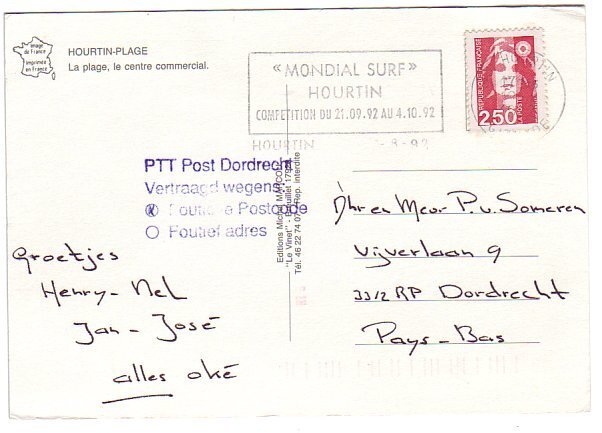 image
de France
Imprimée
en France
HOURTIN-PLAGE
La plage, le centre commercial.
« MONDIAL SURF »
HOURTIN
COMPETITION DU 21.09.92 AU 4.10.92
HOURTIN
-8-92
REPUBLIQUE FRANÇAISE
LA POSTE
2,50
PTT Post Dordrecht
Vertraagd wegens
Foutieve Postcode
Foutief adres
Editions Michel
"Le Vinet" -
Tél. 46 22 74 07 - Rep. interdite
Groetjes
Henry-Nel
Jan-José
alles oké
Dhr en Mevr P. v. Someren
Vijverlaan 9
3312 RP Dordrecht
Pays-Bas